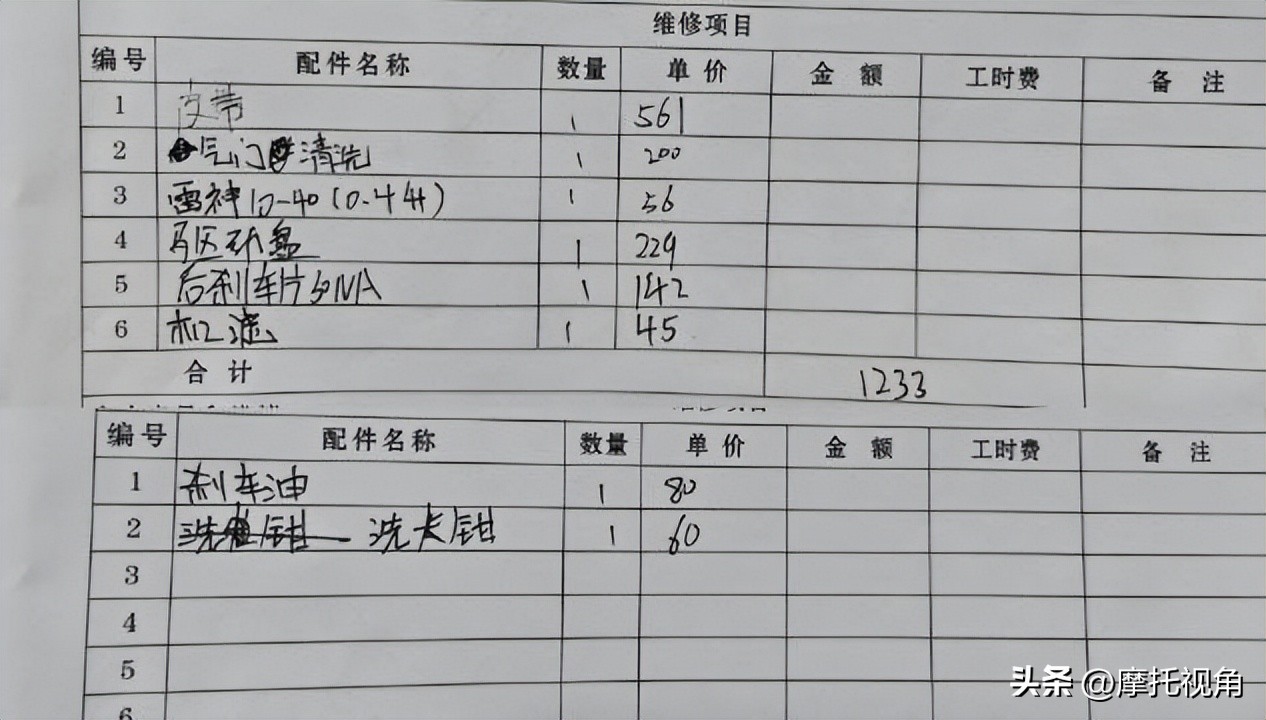 维修项目
编号 配件名称 数量 单价 金额 工时费 备注
1 皮带 1 561
2 气门清洗 1 200
3 雷神10-40(0.4升) 1 56
4 驱动盘 1 229
5 后刹车片 1 142
6 机滤 1 45
合计 1233
编号 配件名称 数量 单价 金额 工时费 备注
1 刹车油 1 80
2 洗卡钳 1 60
3
4
5
6
头条 @摩托视角